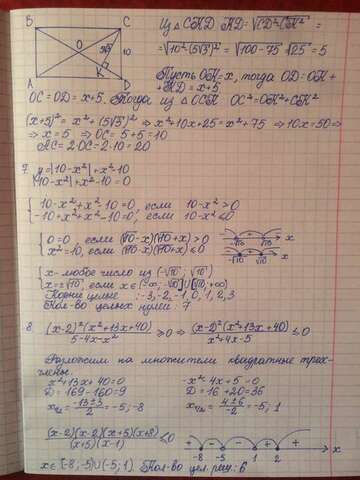 B C
Из △ CKD KD = √CD²-CK² =
O 5√3 10
= √10²-(5√3)² = √100-75 = √25 = 5
K
A D
Пусть OK=x, тогда OD=OK+
+KD = x+5
OC=OD=x+5. Тогда из △OCK OC²=OK²+CK²
(x+5)² = x²+(5√3)² ⇒ x²+10x+25 = x²+75 ⇒ 10x=50 ⇒
⇒ x=5 ⇒ OC=5+5=10
AC=2OC=2·10=20
7. y=|10-x²|+x²-10
|10-x²|+x²-10=0
10-x²+x²-10=0, если 10-x²>0
-10+x²+x²-10=0, если 10-x²≤0
0=0 если (√10-x)(√10+x)>0
-√10 √10 x
x²=10, если (√10-x)(√10+x)≤0
-√10 √10 x
x-любое число из (-√10; √10)
x=±√10, если x∈(-∞;-√10]∪[√10;+∞)
Корни целые: -3,-2,-1,0,1,2,3
Кол-во целых корней: 7
8. (x-2)²(x²+13x+40) / 5-4x-x² ≥0 ⇒ (x-2)²(x²+13x+40) / x²+4x-5 ≤0
Разложим на множители квадратные трех-
члены.
x²+13x+40=0 -x²-4x+5=0
D=169-160=9 D=16+20=36
x₁,₂= -13±3 / 2 = -5;-8 x₁,₂= 4±6 / -2 = -5; 1
(x-2)(x-2)(x+5)(x+8) / (x+5)(x-1) ≤0
+ - - + +
-8 -5 1 2 x
x∈[-8;-5)∪(-5;1). Кол-во цел.реш: 6